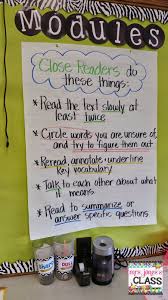 Modules
Close Readers do
these things:
*Read the text slowly at
least twice
*Circle words you are unsure of
and try to figure them out
*Reread, annotate + underline
key vocabulary
*Talk to each other about what
it means
*Read to summarize or
answer specific questions.
mrs. jones's
CLASS